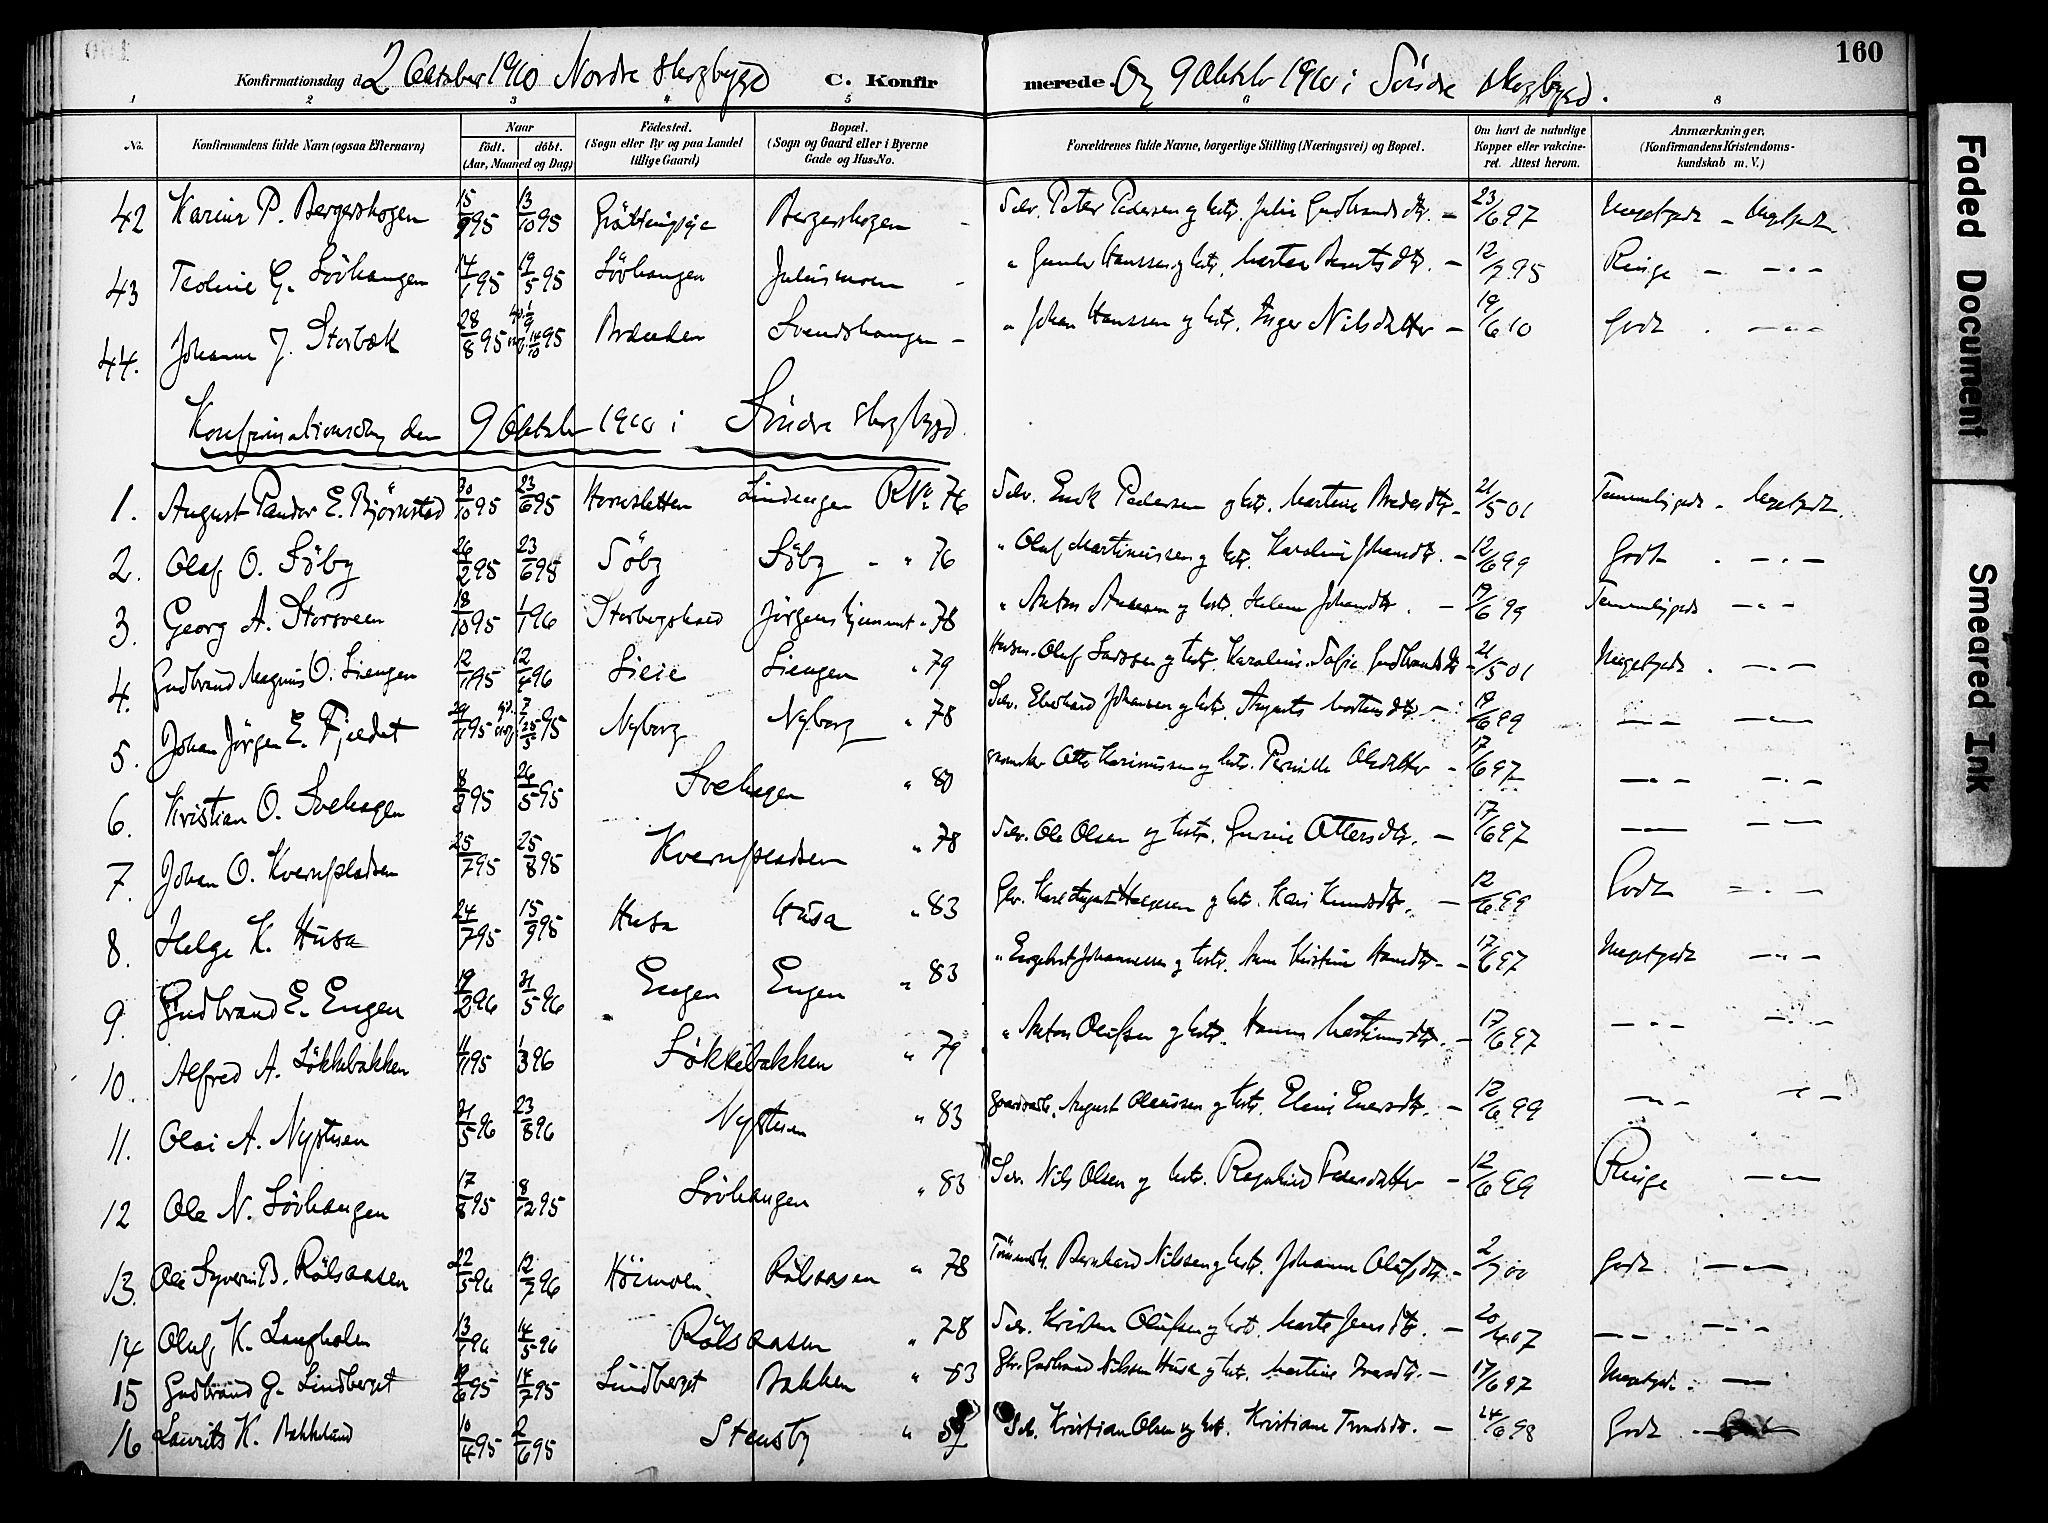 160
2 Oktober 1910 Nordre Skogbygd Og 9 Oktober 1910 i Söndre Skogbygd.
Konfirmationsdag d. C. Konfirmerede.
1 2 3 4 5 6 8
No. Konfirmandens fulde Navn (ogsaa Efternavn) Naar födt. döbt. (Aar, Maaned og Dag) Födested. (Sogn eller By og paa Landet tillige Gaard) Bopæl. (Sogn og Gaard eller i Byerne Gade og Hus-No. Forældrenes fulde Navne, borgerlige Stilling (Næringsvei) og Bopæl. Om havt de naturlige Kopper eller vaccineret. Attest herom. Anmærkninger. (Konfirmandens Kristendomskundskab m. V.)
42 Karine P. Bergerskogen 15/9 95 13/10 95 Bergerskogen Selv. Peter Pedersen og hstr. Julie Gudbrandsdtr. 23/6 97 Megetgodt - Megetgodt
43 Teoline G. Lövhaugen 14/1 95 19/5 95 Lövhaugen Juliusmoen " Hanssen og hstr. Berntsdtr. 12/7 95 Ringe
44. Johanne J. Storbæk 28/8 95 95 Brænden Svendshaugen " Johan Hanssen og hstr. Inger Nilsdatter 19/6 10 Godt
Konfirmationsdag den 9 Oktober 1910 i Söndre Skogbygd
1. August Pander E. Björnstad 30/10 95 23/6 95 Hornsletten Lindengen RNo 76 Selv. Pedersen og hstr. Martine 21/5 01 Temmeligodt - Megetgodt
2. Olaf O. Söby 26/2 95 23/6 95 Söby Söby " 76 " Olaf Martinussen og hstr. Karoline Johansdtr. 12/6 99 Godt
3. Georg A. Storsveen 18/10 95 1/1 96 Jörgenshjemmet " 78 " Anton og hstr. Helene Johansdtr. 17/6 99 Temmeligodt
4. Gudbrand Magnus O. Liengen 12/11 95 12/4 96 Liengen " 79 Olaf Larssen og hstr. Karoline Sofie Gudbrandsdtr 21/5 01 Megetgodt
5. Johan Jörgen E. Fjeldet 95 95 Nyborg Nyborg " 78 Selv. Eberhard Johansen og hstr. Augusta Mortensdtr. 17/6 99
6. Kristian O. Svehagen 8/3 95 26/5 95 Svehagen " 80 Otto Karinussen og hstr. Pernille Olsdatter 17/6 97
7. Johan O. Kvernpladsen 25/7 95 25/8 95 Kvernpladsen " 78 Selv. Ole Olsen og hstr. Gurine Ottersdtr. 17/6 97
8. Helge K. Husa 24/7 95 15/9 95 Husa Husa " 83 Karl August og hstr. Kari Knudsdtr. 12/6 99 Godt
9. Gudbrand E. Engen 19/2 96 31/5 96 Engen Engen " 83 " Engebret Johannessen og hstr. Anne Kristine Hansdtr 17/6 97 Megetgodt
10. Alfred A. Lökkebakken 95 1/3 96 Lökkebakken " 79 " Anton Olufsen og hstr. Hanna Martinusdtr. 17/6 97
11. Olai A. Nystuen 31/5 96 23/8 96 Nystuen " 83 August Olaussen og hstr. Eline Enersdtr. 12/6 99
12 Ole N. Lövhaugen 17/8 95 8/12 95 Lövhaugen " 83 Selv. Nils Olsen og hstr. Ragnhild Pedersdatter 12/6 99 Ringe
13. Ole Syverin B. Rölsaasen 22/5 96 12/7 96 Höimoen Rölsaasen " 78 Bernhard Nilssen og hstr. Johanne Olufsdtr. 2/7 00 Godt
14 Oluf K. Langholen 13/1 96 14/5 96 Rölsaasen " 78 Selv. Kristen Olufsen og hstr. Marte Jensdtr. 20/4 07
15 Gudbrand G. Lindberget 95 14/7 95 Lindberget Bakken " 83 Gbr. Gudbrand Nilssen Husa og hstr. Martine Iversdtr. 17/6 97 Megetgodt.
16 Laurits K. Bakkelund 10/4 95 2/6 95 Stensby " Selv. Kristian Olsen og hstr. Kristiane 24/6 98 Godt
Faded Document
Smeared Ink